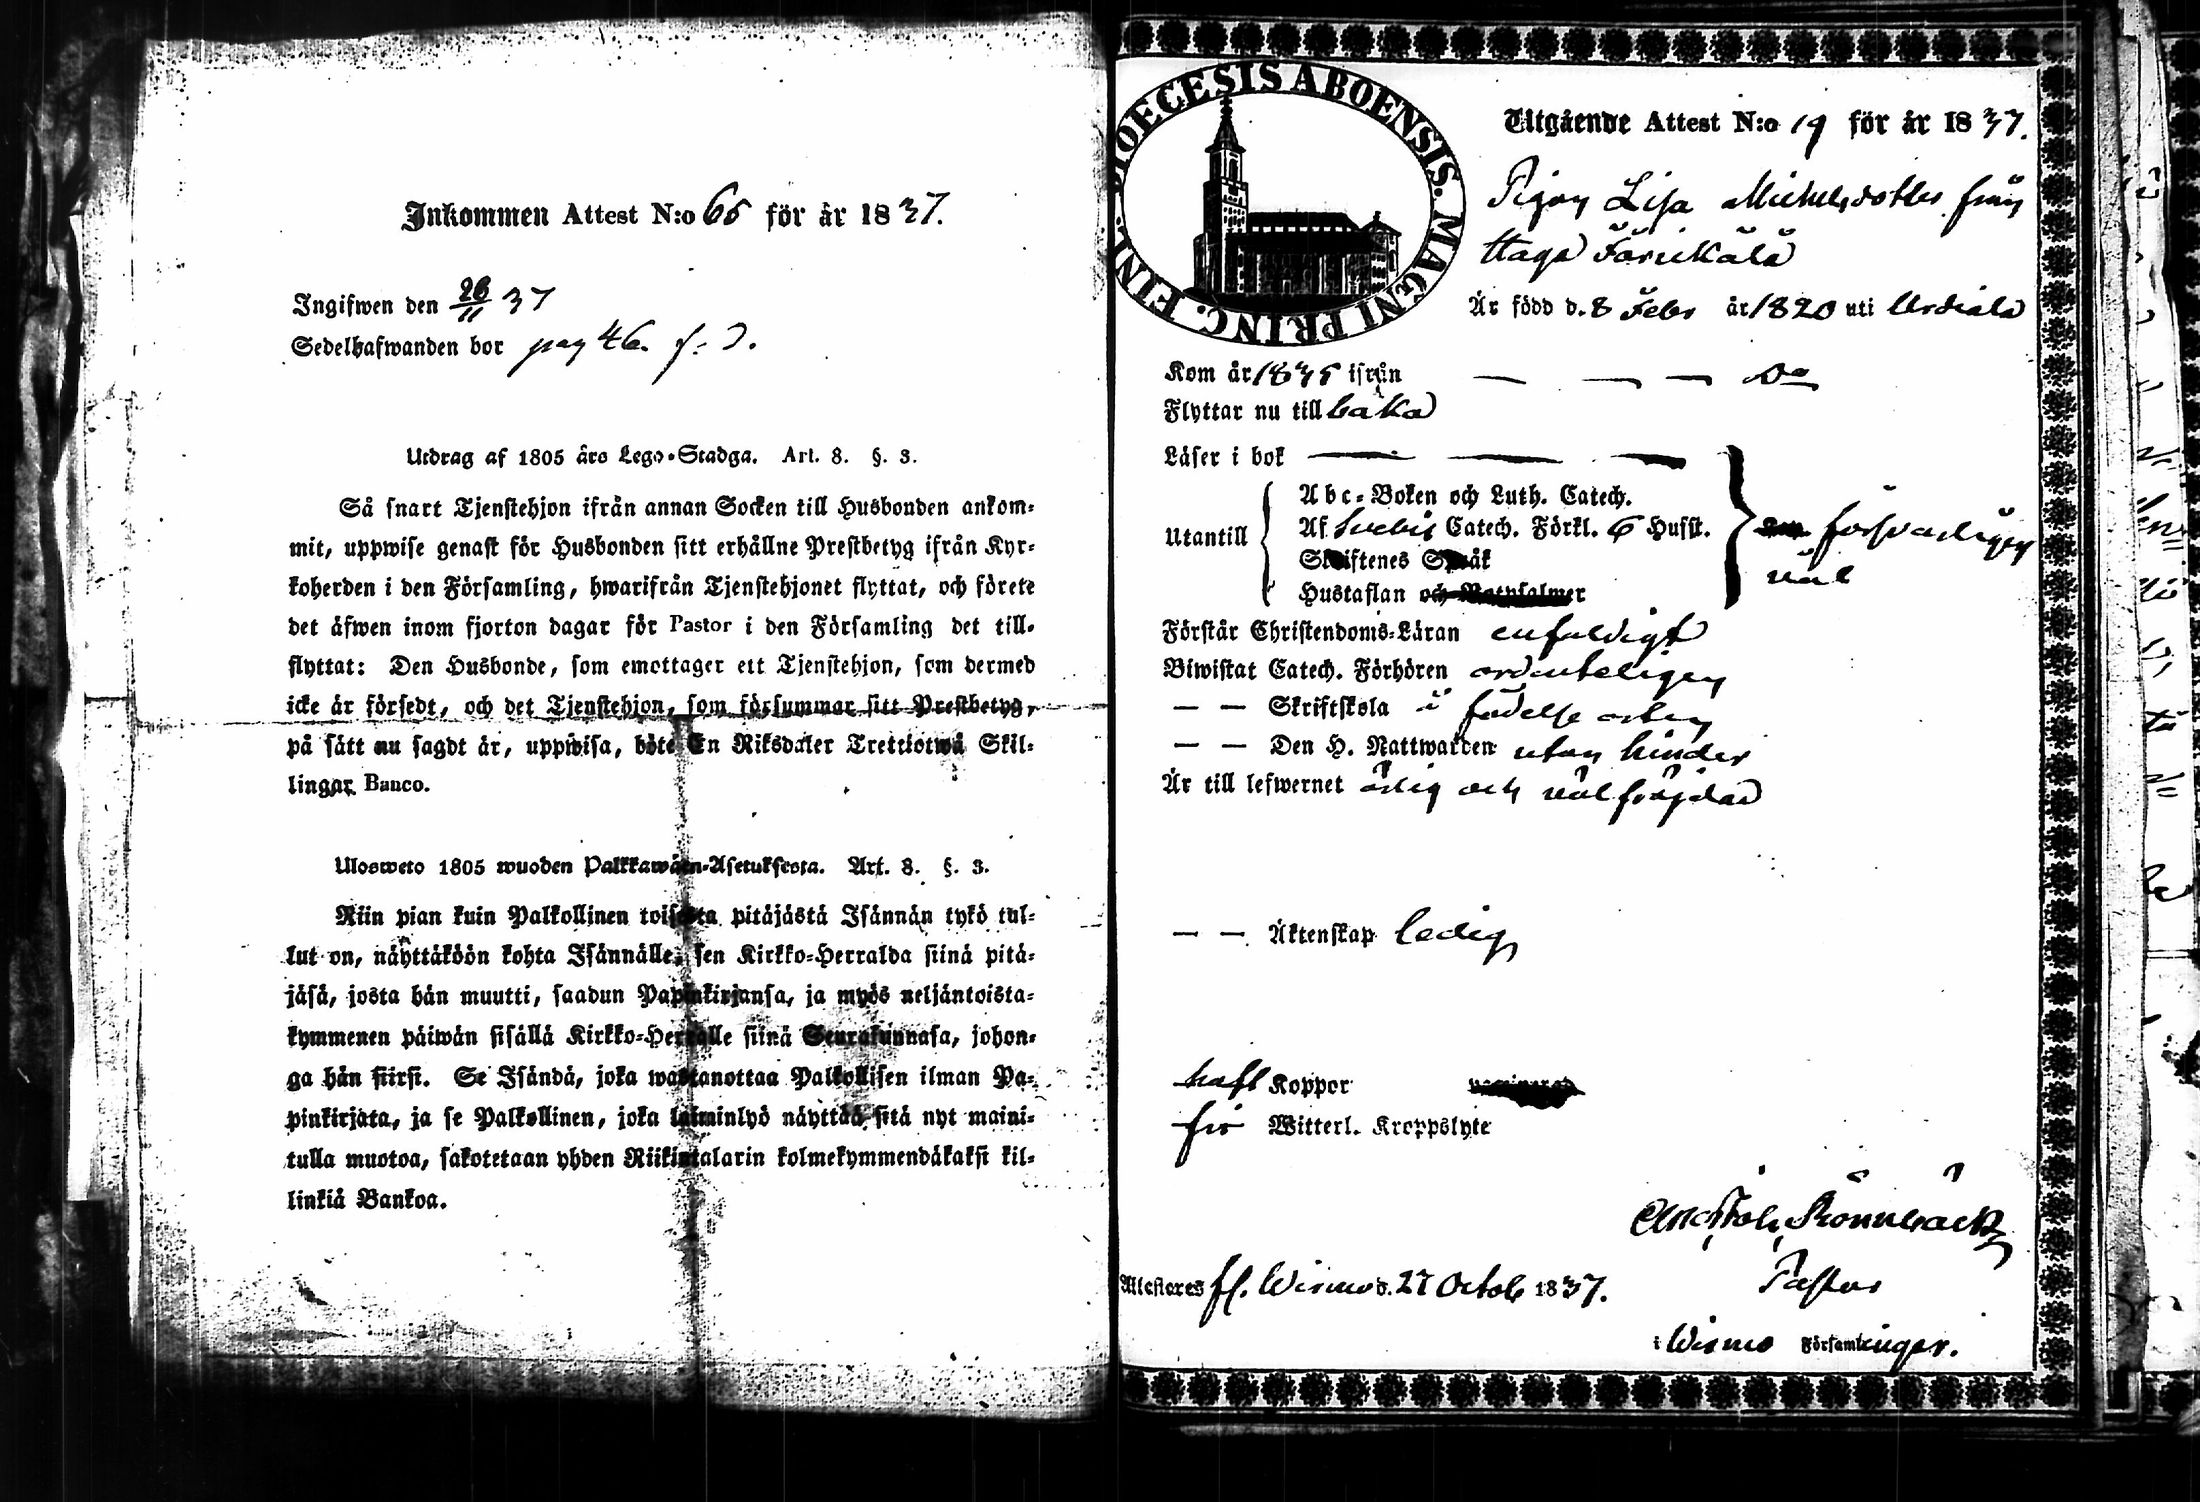 Inkommen Attest N:o 65 för år 1837.
Ingifwen den 26/11 37
Sedelhafwanden bor pag 46.
Utdrag af 1805 års Lego-Stadga. Art. 8. §. 3.
Så snart Tjenstehjon ifrån annan Socken till Husbonden ankom-
mit, uppwise genast för Husbonden sitt erhållne Prestbetyg ifrån Kyr-
koherden i den Församling, hwarifrån Tjenstehjonet flyttat, och förete
det äfwen inom fjorton dagar för Pastor i den Församling det till-
flyttat: Den Husbonde, som emottager ett Tjenstehjon, som dermed
icke är försedt, och det Tjenstehjon, som försummar sitt Prestbetyg,
på sätt nu sagdt är, uppwisa, böte En Riksdaler Trettiotwå Skil-
lingar Banco.
Ulosweto 1805 wuoden Palkkawäen-Asetuksesta. Art. 8. §. 3.
Niin pian kuin Palkollinen toisesta pitäjästä Isännän tykö tul-
lut on, näyttäköön kohta Isännälle, sen Kirkko-Herralda siinä pitä-
jäsä, josta hän muutti, saadun Papinkirjansa, ja myös neljäntoista-
kymmenen päiwän sisällä Kirkko-Herralle siinä Seurakunnasa, johon-
ga hän siirsi. Se Isändä, joka wastanottaa Palkollisen ilman Pa-
pinkirjata, ja se Palkollinen, joka laiminlyö näyttää sitä nyt maini-
tulla muotoa, sakotetaan yhden Riikintalarin kolmekymmendäkaksi kil-
linkiä Bankoa.
DIOECESIS ABOENSIS. MAGNI PRINC. FINL.
Utgående Attest N:o 19 för år 1837.
Pigan Lisa Michelsdotter från
Haga Järvikälä
Är född d. 8 Febr år 1820 uti Urdiala
Kom år 1835 ifrån — — — Do
Flyttar nu till baka
Läser i bok — — —
Utantill
Abc-Boken och Luth. Catech.
Af Svebii Catech. Förkl. 6 Hufst.
Skriftenes Språk
Hustaflan och Botpsalmer
försvarligen
väl
Förstår Christendoms-Läran enfaldigt
Biwistat Catech. Förhören ordenteligen
— — Skriftskola i födelse orten
— — Den H. Nattwarden utan hinder
Är till lefwernet ärlig och välfräjdad
— — Äktenskap ledig
haft Koppor
fri Witterl. Kroppslyte
Rönnbäck
Pastor
Attesteres fr. Wirmo d. 27 Octob 1837.
i Wirmo Församlingar.